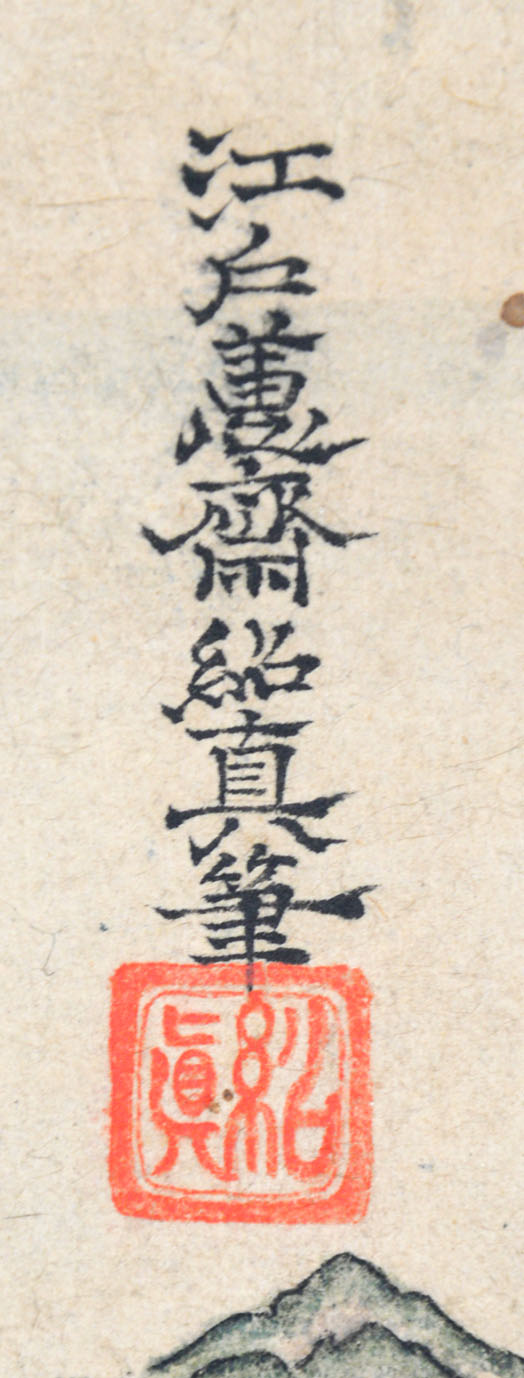 江戸蕙齋紹真筆
紹眞